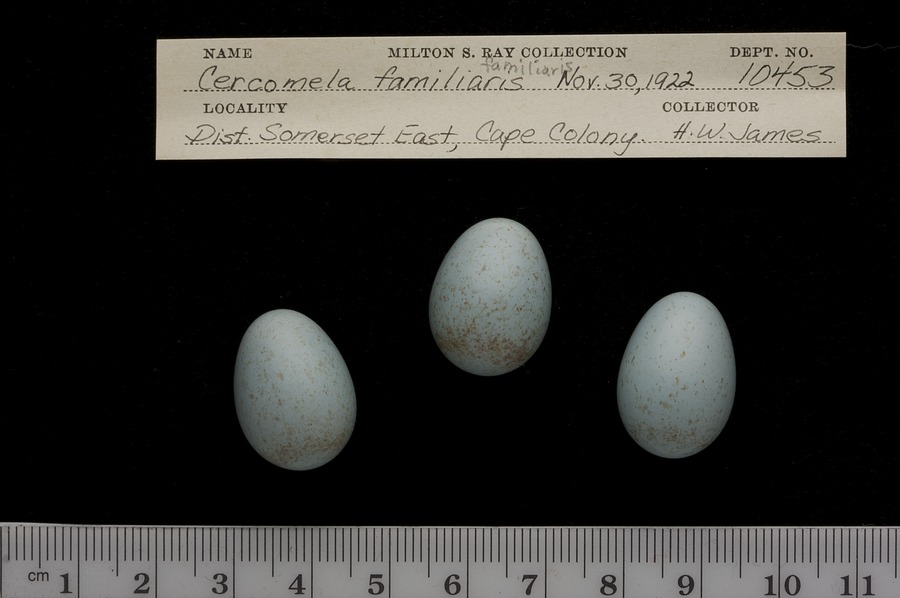 NAME MILTON S. RAY COLLECTION DEPT. NO.
familiaris
Cercomela familiaris Nov. 30, 1922 10453
LOCALITY COLLECTOR
Dist. Somerset East, Cape Colony. H.W. James
cm 1 2 3 4 5 6 7 8 9 10 11